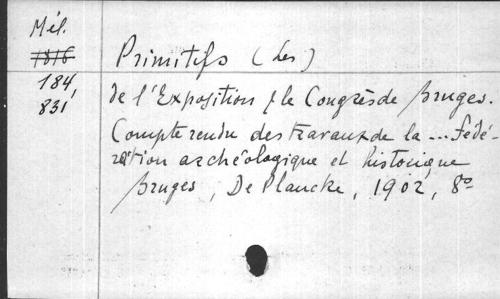 Mél.
1816
184,
831
Primitifs (Les)
de l'Exposition & le Congrès de Bruges.
Compte rendu des travaux de la ... Fédé-
ration archéologique et historique
Bruges, De Plancke, 1902, 8°